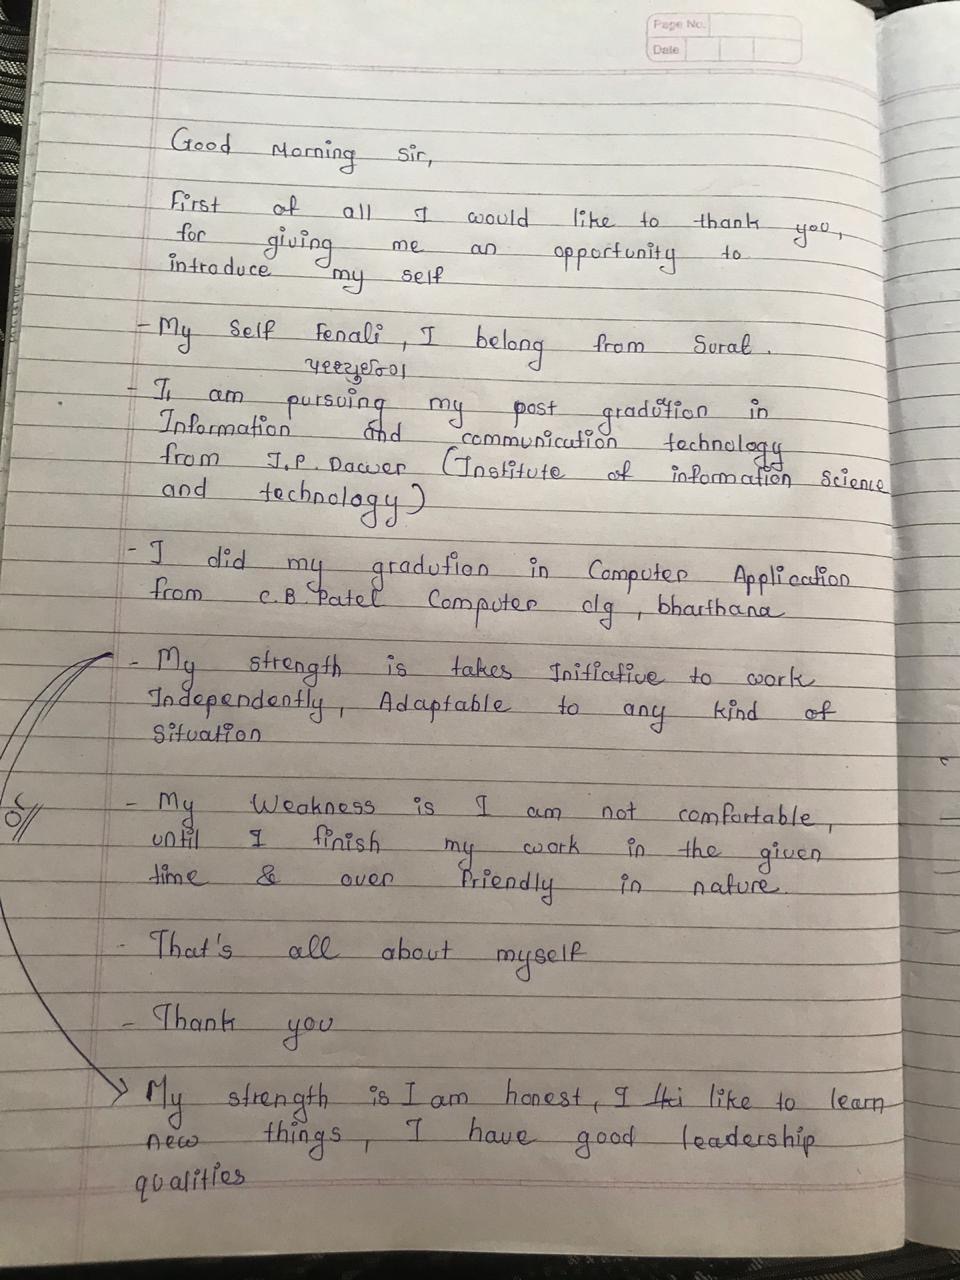 Page No.
Date
Good Morning Sir,
First of all I would like to thank you,
for giving me an opportunity to
introduce my self
- My Self Fenali, I belong from Surat.
- I am pursuing my post gradution in
Information and communication technology
from J.P. Dawer (Institute of information Science
and technology)
- I did my gradution in Computer Application
from C.B Patel Computer clg, bharthana
- My strength is takes Initiative to work
Independently, Adaptable to any kind of
Situation
- My Weakness is I am not comfortable,
until I finish my work in the given
time & over friendly in nature.
- That's all about myself
- Thank you
My strength is I am honest, I like to learn
new things, I have good leadership
qualities